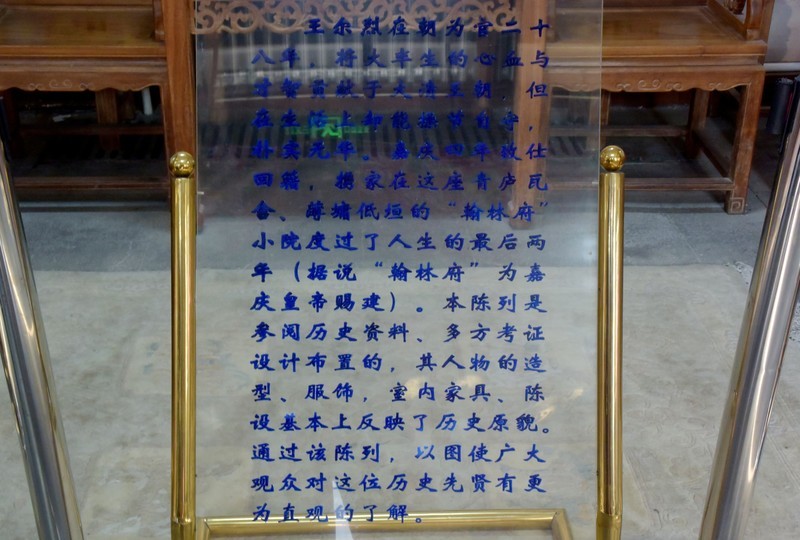 王尔烈在朝为官二十
八年，将大半生的心血与
才智贡献于大清王朝，但
在生活上却能操节自守，
朴实无华。嘉庆四年致仕
回籍，携家在这座青庐瓦
舍、薄墙低垣的“翰林府”
小院度过了人生的最后两
年（据说“翰林府”为嘉
庆皇帝赐建）。本陈列是
参阅历史资料、多方考证
设计布置的，其人物的造
型、服饰，室内家具、陈
设基本上反映了历史原貌。
通过该陈列，以图使广大
观众对这位历史先贤有更
为直观的了解。